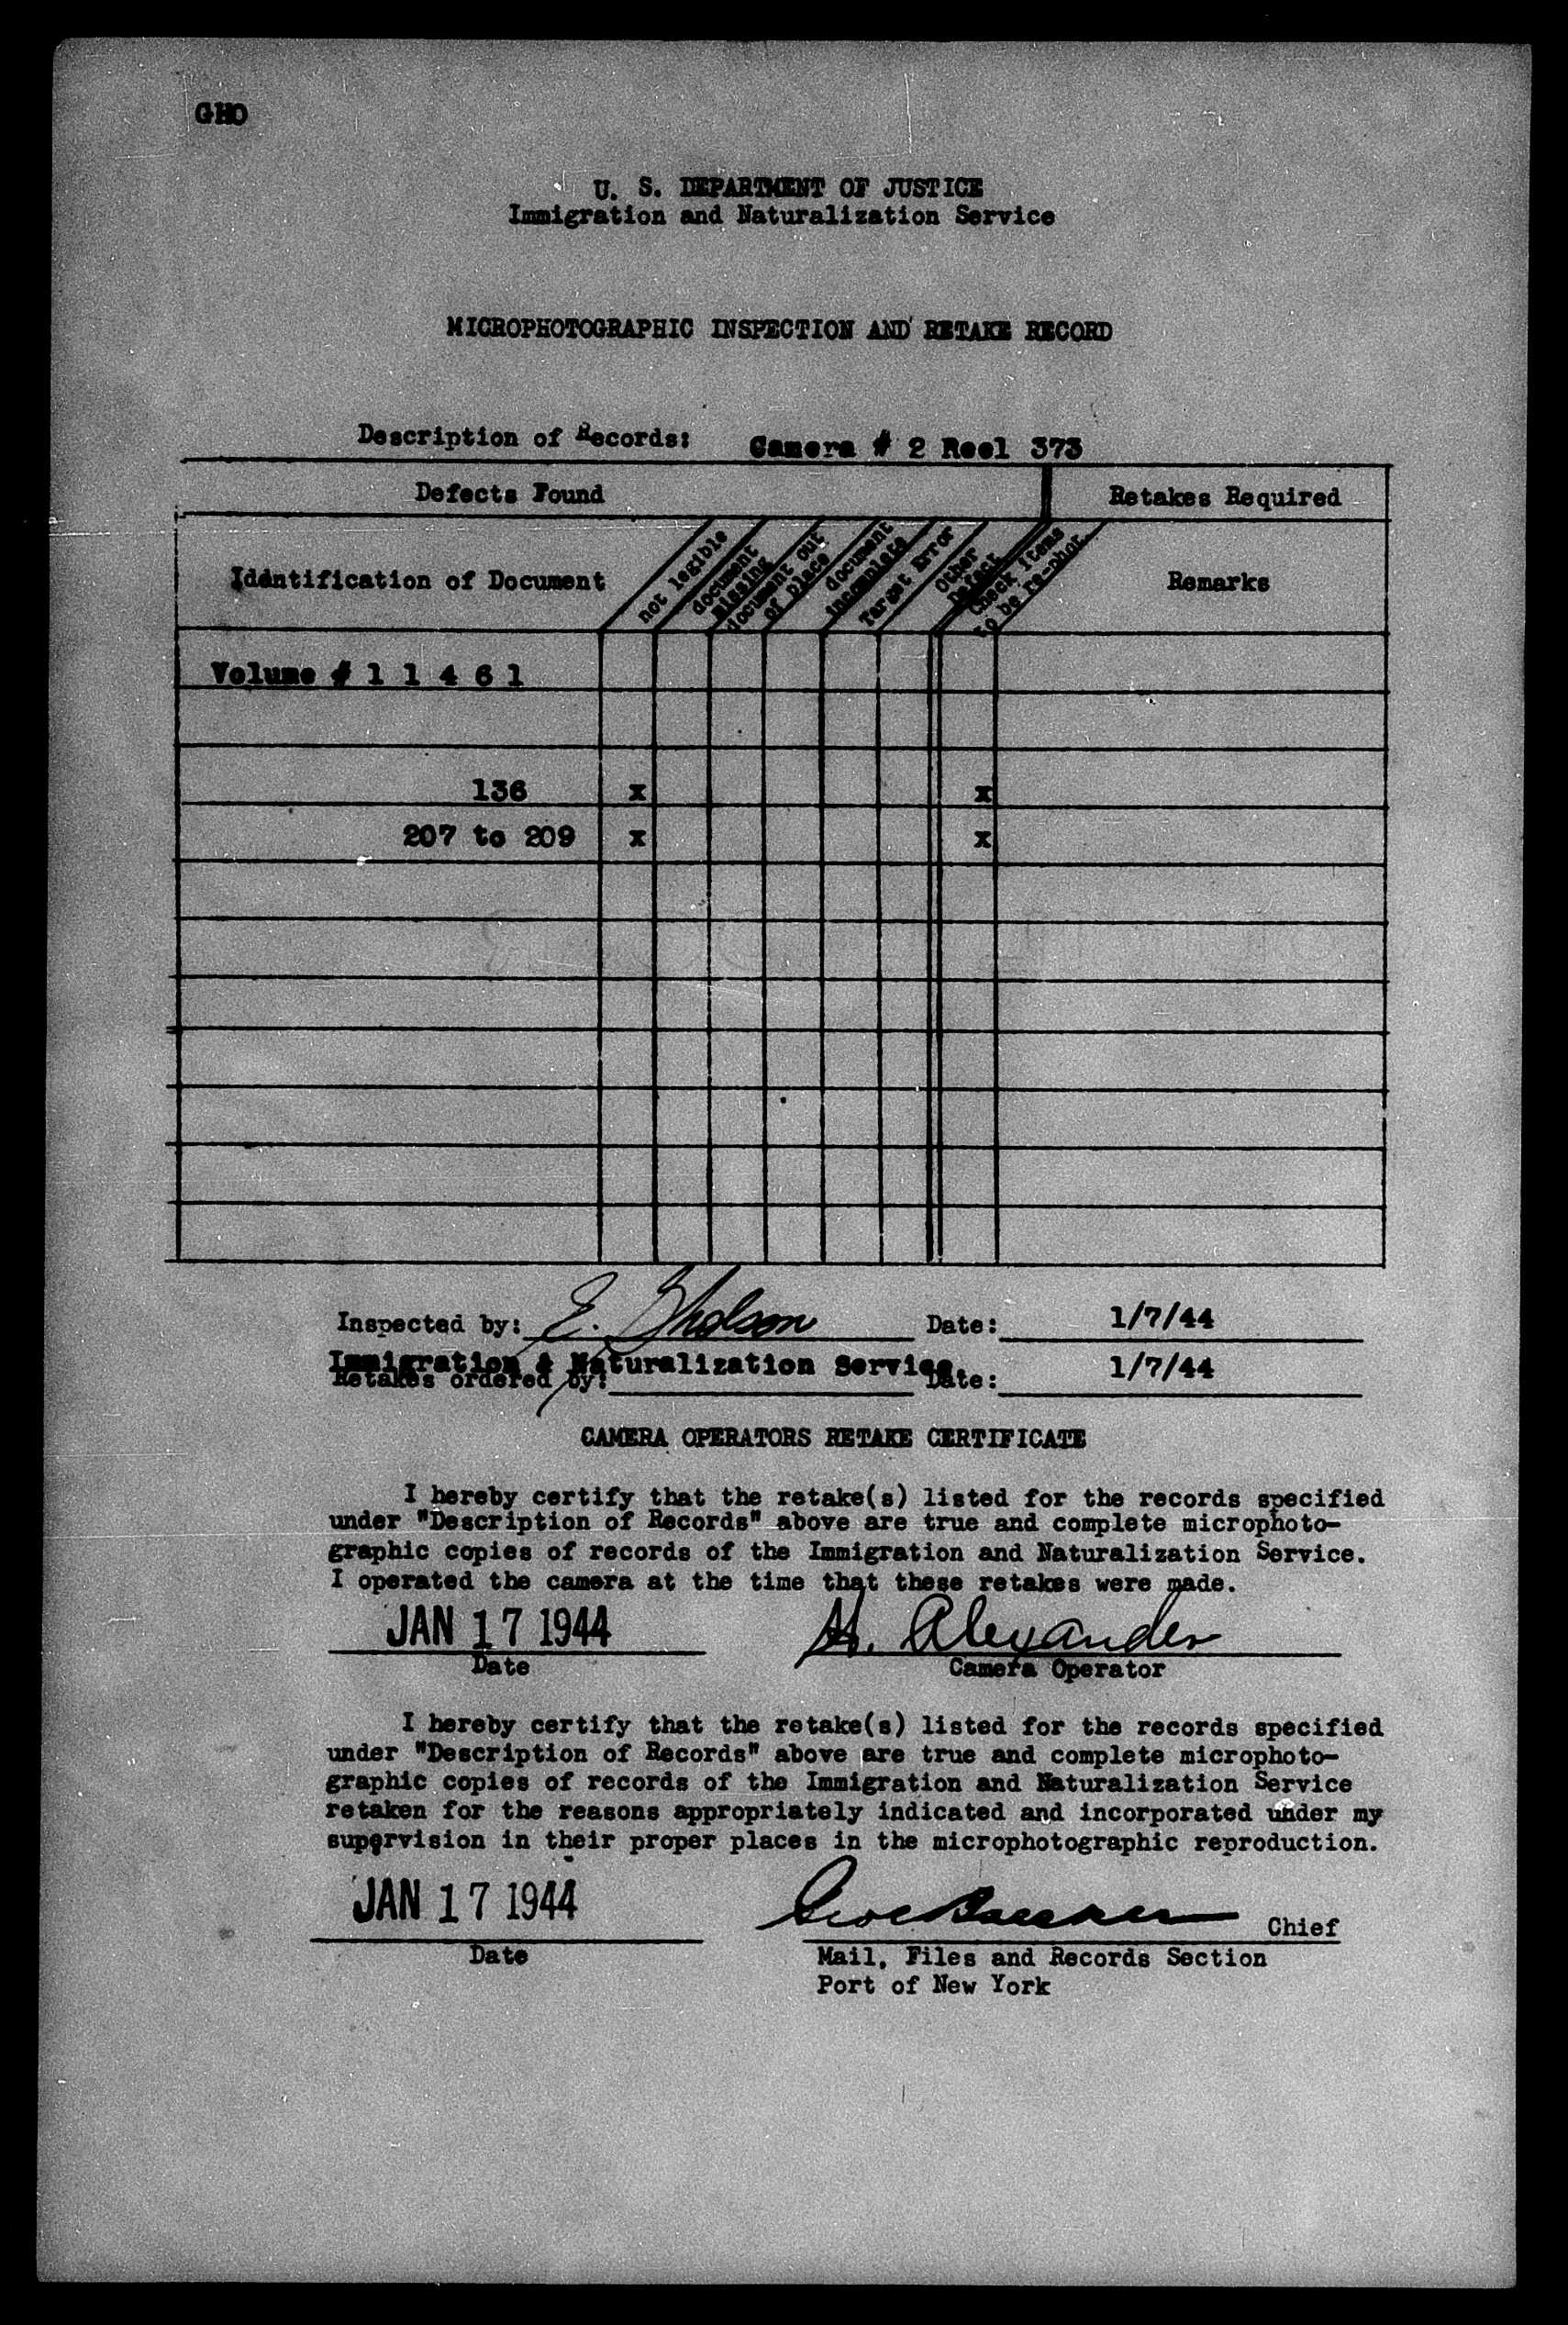 GHO
U. S. DEPARTMENT OF JUSTICE
Immigration and Naturalization Service
MICROPHOTOGRAPHIC INSPECTION AND RETAKE RECORD
Description of Records: Camera # 2 Reel 373
Defects Found Retakes Required
Identification of Document
not legible
document
missing
document out
of place
document
incomplete
Target Error
Other
Defect
Check items
to be re-phot.
Remarks
Volume # 1 1 4 6 1
136 x x
207 to 209 x x
Inspected by: E. Gholson Date: 1/7/44
Immigration & Naturalization Service.
Retakes ordered by: Date: 1/7/44
CAMERA OPERATORS RETAKE CERTIFICATE
I hereby certify that the retake(s) listed for the records specified
under "Description of Records" above are true and complete microphoto-
graphic copies of records of the Immigration and Naturalization Service.
I operated the camera at the time that these retakes were made.
JAN 17 1944 H. Alexander
Date Camera Operator
I hereby certify that the retake(s) listed for the records specified
under "Description of Records" above are true and complete microphoto-
graphic copies of records of the Immigration and Naturalization Service
retaken for the reasons appropriately indicated and incorporated under my
supervision in their proper places in the microphotographic reproduction.
JAN 17 1944 Chief
Date Mail, Files and Records Section
Port of New York